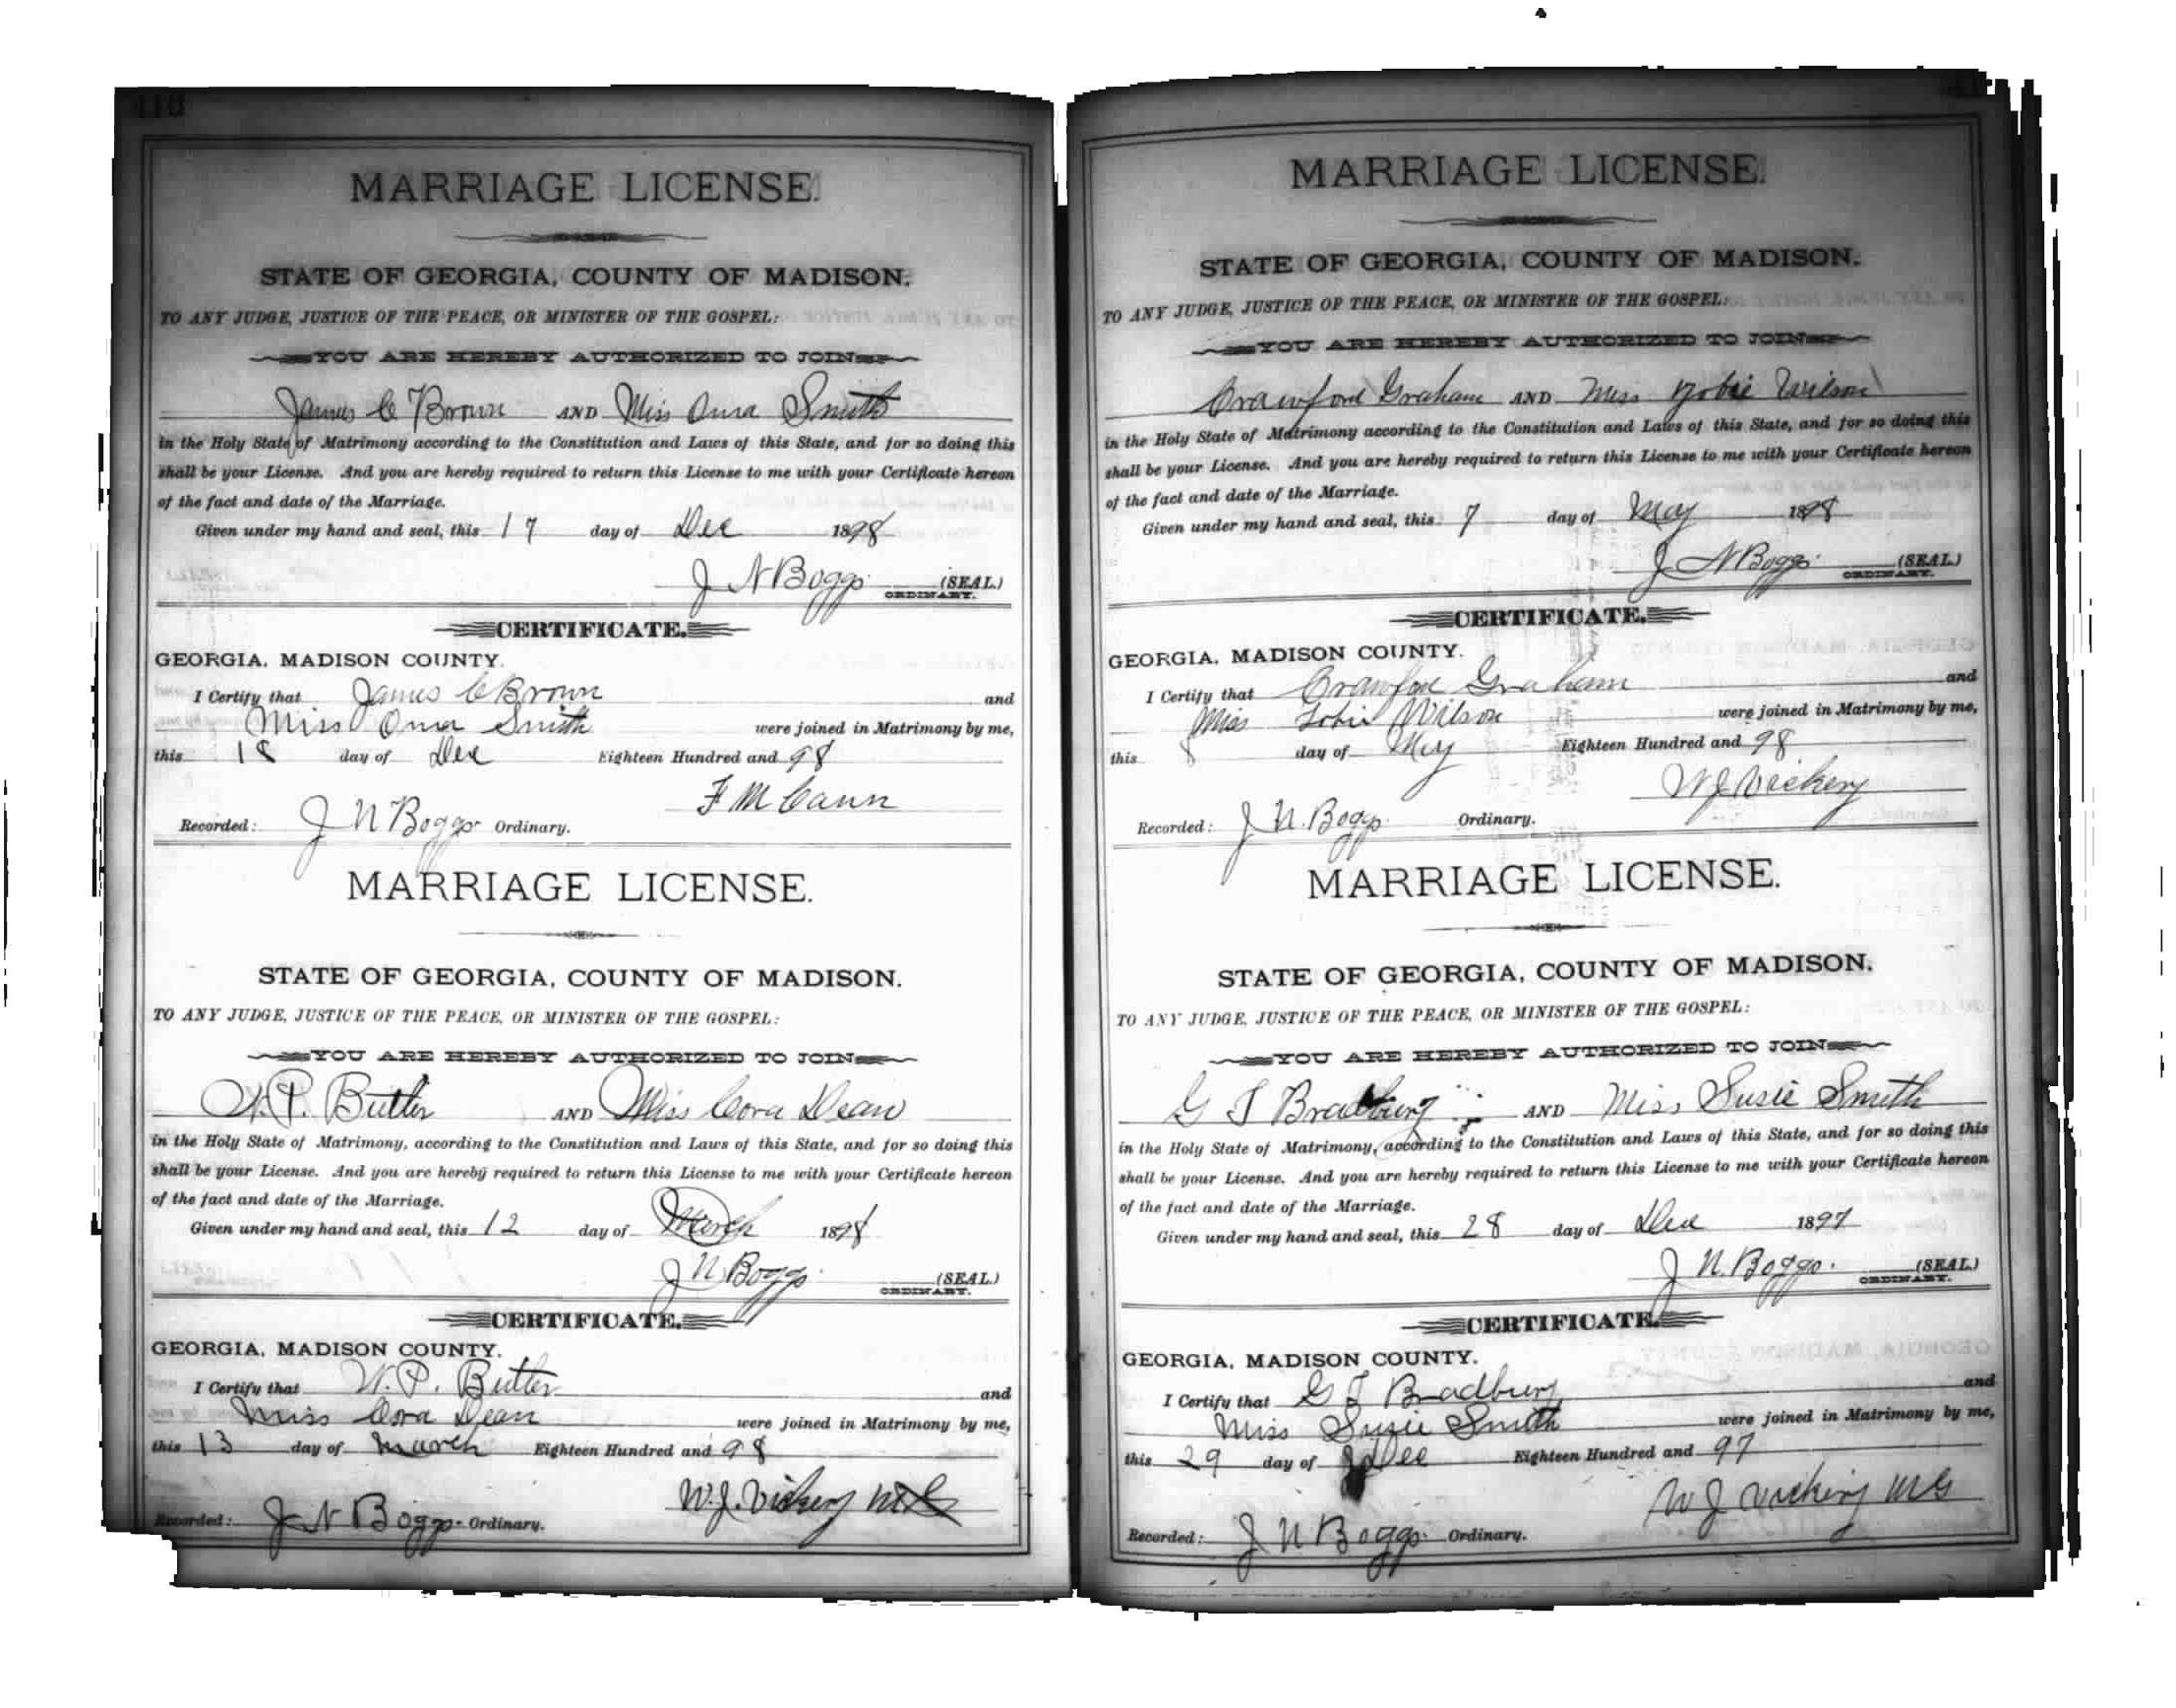 110
MARRIAGE LICENSE.
STATE OF GEORGIA, COUNTY OF MADISON.
TO ANY JUDGE, JUSTICE OF THE PEACE, OR MINISTER OF THE GOSPEL:
YOU ARE HEREBY AUTHORIZED TO JOIN
James C Brown AND Miss Oma Smith
in the Holy State of Matrimony according to the Constitution and Laws of this State, and for so doing this
shall be your License. And you are hereby required to return this License to me with your Certificate hereon
of the fact and date of the Marriage.
Given under my hand and seal, this 17 day of Dec 1898
J N Boggs (SEAL.)
ORDINARY.
CERTIFICATE.
GEORGIA, MADISON COUNTY.
I Certify that James C Brown and
Miss Oma Smith were joined in Matrimony by me,
this 18 day of Dec Eighteen Hundred and 98
F M Cann
Recorded: J N Boggs Ordinary.
MARRIAGE LICENSE.
STATE OF GEORGIA, COUNTY OF MADISON.
TO ANY JUDGE, JUSTICE OF THE PEACE, OR MINISTER OF THE GOSPEL:
YOU ARE HEREBY AUTHORIZED TO JOIN
W. P. Butler AND Miss Cora Dean
in the Holy State of Matrimony, according to the Constitution and Laws of this State, and for so doing this
shall be your License. And you are hereby required to return this License to me with your Certificate hereon
of the fact and date of the Marriage.
Given under my hand and seal, this 12 day of March 1898
J N Boggs (SEAL.)
ORDINARY.
CERTIFICATE.
GEORGIA, MADISON COUNTY.
I Certify that W. P. Butler and
Miss Cora Dean were joined in Matrimony by me,
this 13 day of March Eighteen Hundred and 98
W. J. Vickery MG
Recorded: J N Boggs Ordinary.
MARRIAGE LICENSE.
STATE OF GEORGIA, COUNTY OF MADISON.
TO ANY JUDGE, JUSTICE OF THE PEACE, OR MINISTER OF THE GOSPEL:
YOU ARE HEREBY AUTHORIZED TO JOIN
Crawford Graham AND Miss Wilson
in the Holy State of Matrimony according to the Constitution and Laws of this State, and for so doing this
shall be your License. And you are hereby required to return this License to me with your Certificate hereon
of the fact and date of the Marriage.
Given under my hand and seal, this 7 day of May 1898
J N Boggs (SEAL.)
ORDINARY.
CERTIFICATE.
GEORGIA, MADISON COUNTY.
I Certify that Graham and
Miss Wilson were joined in Matrimony by me,
this 8 day of May Eighteen Hundred and 98
W J Vickery
Recorded: J N. Boggs Ordinary.
MARRIAGE LICENSE.
STATE OF GEORGIA, COUNTY OF MADISON.
TO ANY JUDGE, JUSTICE OF THE PEACE, OR MINISTER OF THE GOSPEL:
YOU ARE HEREBY AUTHORIZED TO JOIN
G T Bradburg AND Miss Susie Smith
in the Holy State of Matrimony, according to the Constitution and Laws of this State, and for so doing this
shall be your License. And you are hereby required to return this License to me with your Certificate hereon
of the fact and date of the Marriage.
Given under my hand and seal, this 28 day of Dec 1897
J N. Boggs. (SEAL.)
ORDINARY.
CERTIFICATE.
GEORGIA, MADISON COUNTY.
I Certify that G T Bradbury and
Miss Susie Smith were joined in Matrimony by me,
this 29 day of Dec Eighteen Hundred and 97
W J Vickery MG
Recorded: J N Boggs Ordinary.